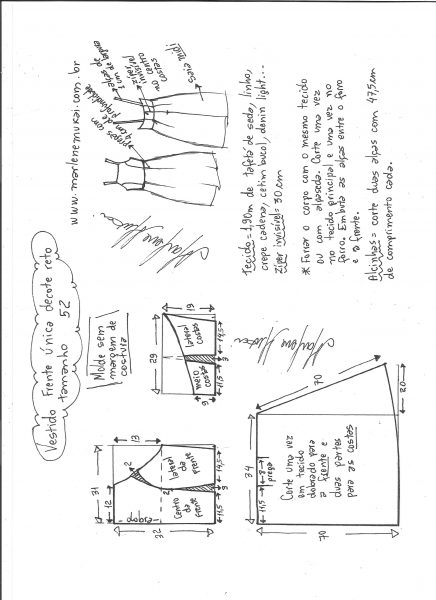 Vestido frente única decote reto
tamanho 52
www.marlenemukai.com.br
pregas com
4cm de
profundidade
alças de
1 cm de
zíper
invisível
no centro
costas
Saia midi
Marlene Mukai
Molde sem
margem de
costura
Tecido = 1,90m de tafetá de seda, linho,
crepe cadena, cetim bucol, denim light...
Zíper invisível = 30cm
* Forrar o corpo com o mesmo tecido
ou com alpaceda. Corte uma vez
no tecido principal e uma vez no
forro. Embuta as alças entre o forro
e a frente.
Alcinhas = corte duas alças com 47,5cm
de comprimento cada.
19
29
lateral
costas
meio
costas
14,5
3
11,5
9
13
31
12
2
2
lateral
da
frente
Centro
da
frente
dobra
14,5
5
11,5
32
Marlene Mukai
70
20
34
8
prega
11,5
Corte uma vez
em tecido
dobrado para
a frente e
duas partes
para as costas
70